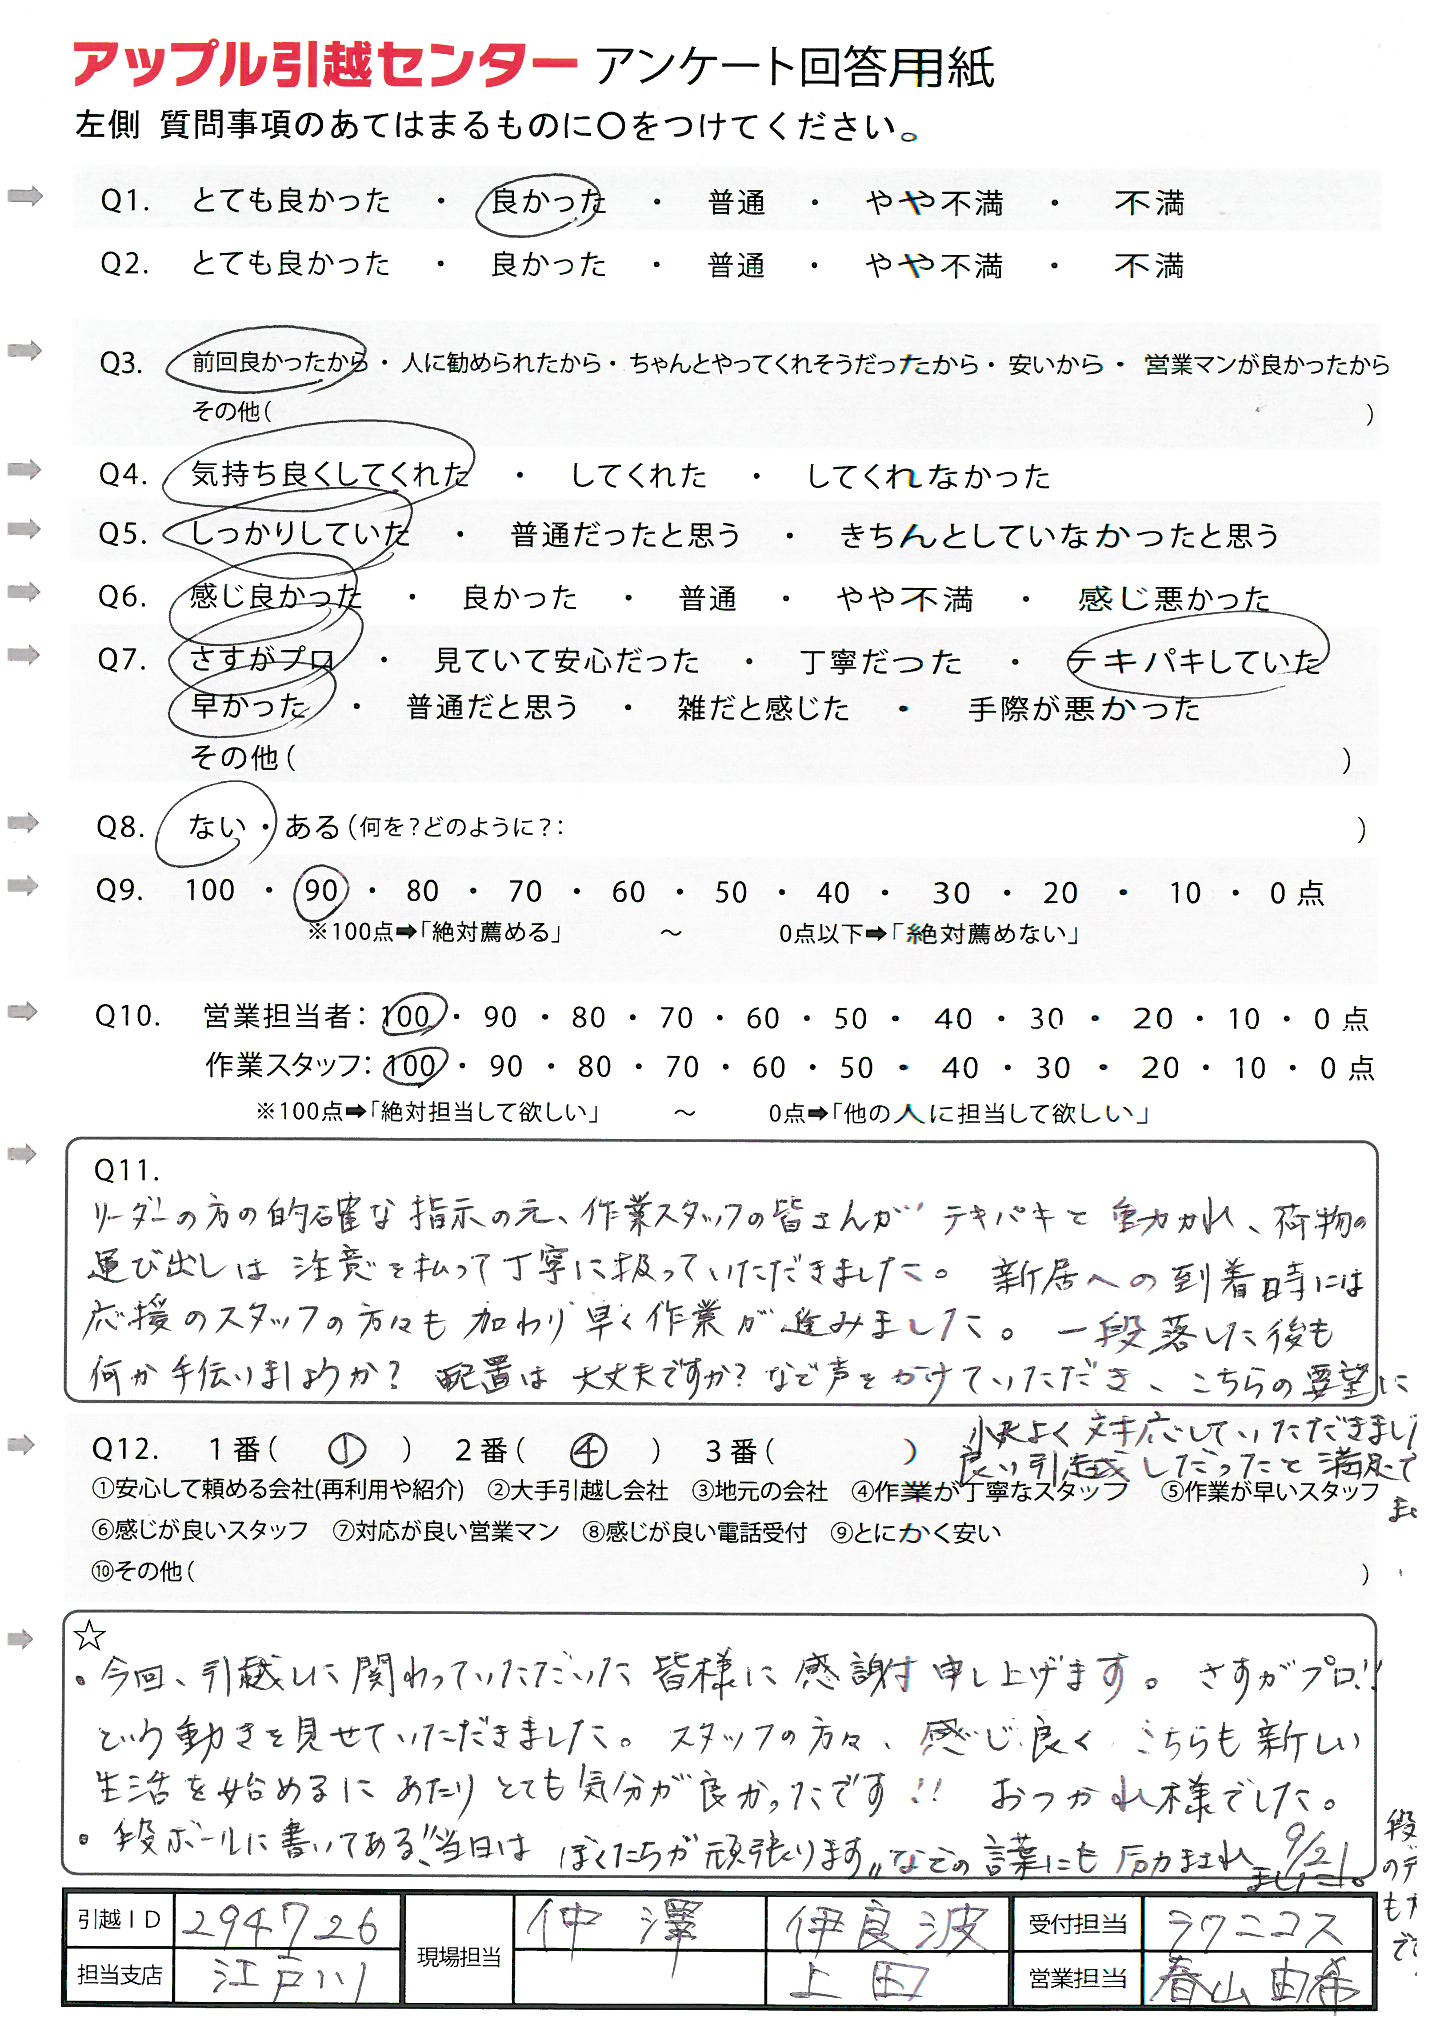 アップル引越センター アンケート回答用紙
左側 質問事項のあてはまるものに○をつけてください。
Q1. とても良かった ・ 良かった ・ 普通 ・ やや不満 ・ 不満
Q2. とても良かった ・ 良かった ・ 普通 ・ やや不満 ・ 不満
Q3. 前回良かったから ・ 人に勧められたから ・ ちゃんとやってくれそうだったから ・ 安いから ・ 営業マンが良かったから
その他( )
Q4. 気持ち良くしてくれた ・ してくれた ・ してくれなかった
Q5. しっかりしていた ・ 普通だったと思う ・ きちんとしていなかったと思う
Q6. 感じ良かった ・ 良かった ・ 普通 ・ やや不満 ・ 感じ悪かった
Q7. さすがプロ ・ 見ていて安心だった ・ 丁寧だつた ・ テキパキしていた
早かった ・ 普通だと思う ・ 雑だと感じた ・ 手際が悪かった
その他( )
Q8. ない ・ ある(何を?どのように?: )
Q9. 100 ・ 90 ・ 80 ・ 70 ・ 60 ・ 50 ・ 40 ・ 30 ・ 20 ・ 10 ・ 0 点
※100点➡「絶対薦める」 ～ 0点以下➡「絶対薦めない」
Q10. 営業担当者: 100 ・ 90 ・ 80 ・ 70 ・ 60 ・ 50 ・ 40 ・ 30 ・ 20 ・ 10 ・ 0 点
作業スタッフ: 100 ・ 90 ・ 80 ・ 70 ・ 60 ・ 50 ・ 40 ・ 30 ・ 20 ・ 10 ・ 0 点
※100点➡「絶対担当して欲しい」 ～ 0点➡「他の人に担当して欲しい」
Q11.
リーダーの方の的確な指示の元、作業スタッフの皆さんが テキパキと動かれ、荷物の
運び出しは 注意を払って丁寧に扱っていただきました。 新居への到着時には
応援のスタッフの方々も 加わり早く作業が進みました。 一段落した後も
何か手伝いましょうか? 配置は大丈夫ですか? など声をかけていただき、こちらの要望に
快よく対応していただきまし
良い引越しだったと満足て
ま
Q12. 1番( ① ) 2番( ④ ) 3番( )
①安心して頼める会社(再利用や紹介) ②大手引越し会社 ③地元の会社 ④作業が丁寧なスタッフ ⑤作業が早いスタッフ
⑥感じが良いスタッフ ⑦対応が良い営業マン ⑧感じが良い電話受付 ⑨とにかく安い
⑩その他( )
☆
・今回、引越しに関わっていただいた皆様に感謝申し上げます。 さすがプロ!!
という動きを見せていただきました。 スタッフの方々、感じ良く こちらも新しい
生活を始めるにあたり とても気分が良かったです!! おつかれ様でした。
・段ボールに書いてある"当日は ぼくたちが頑張ります"などの言葉にも励まされ
ました。 9/21
段
のデ
もが
でさ
引越ID 294726 現場担当 仲澤 伊良波 受付担当 ラクニコス
担当支店 江戸川 上田 営業担当 春山由希